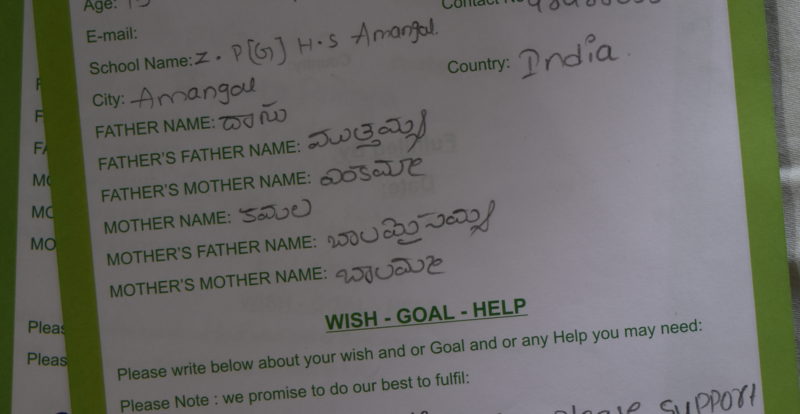 Age:
E-mail:
School Name: Z. P[G] H.S Amangal.
Country: India.
City: Amangal
FATHER NAME: దాసు
FATHER'S FATHER NAME: ముత్తయ్య
FATHER'S MOTHER NAME: ఎంకమ్మ
MOTHER NAME: కమల
MOTHER'S FATHER NAME: బాలమైసయ్య
MOTHER'S MOTHER NAME: బాలమ్మ
WISH - GOAL - HELP
Please write below about your wish and or Goal and or any Help you may need:
Please Note : we promise to do our best to fulfil:
please support
MO
MO
Pleas
Pleas